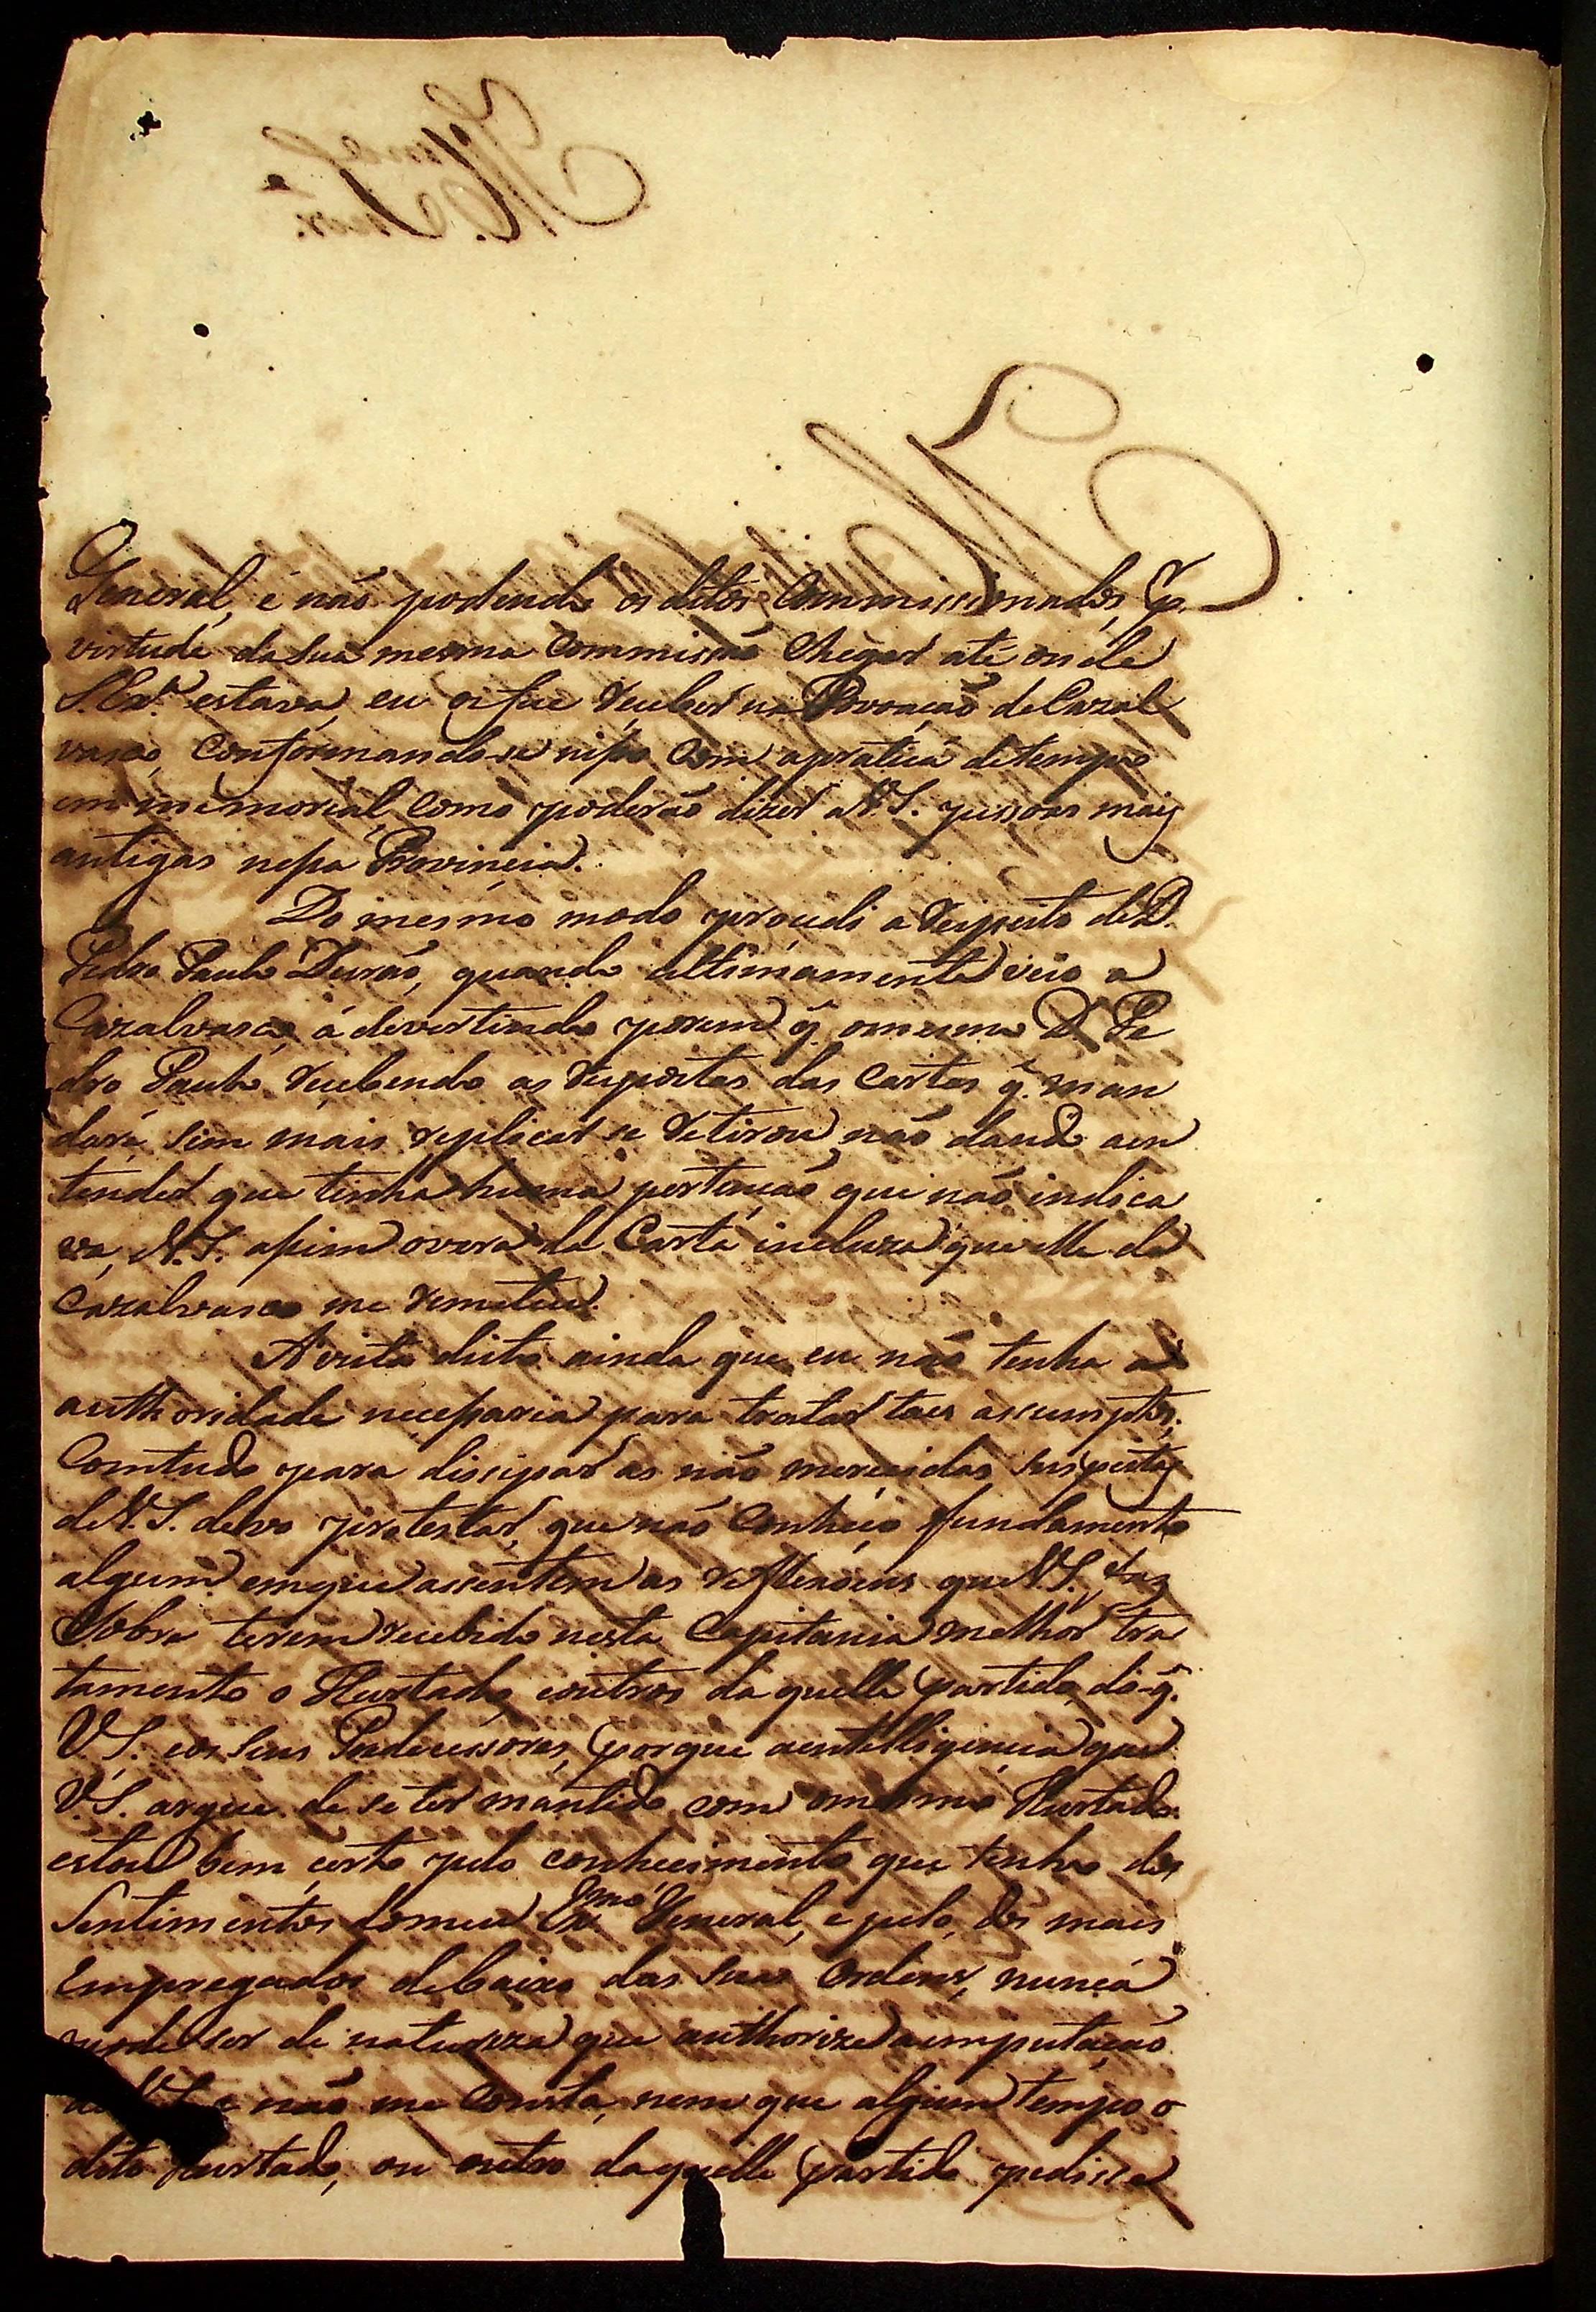 General, e não podendo os ditos Commissionados, p.
virtude da sua mesma Commissão chegar até onde
S. Ex.ª estava, eu os fiz receber na Povoação de Cazal
vasco, conformando-se nisso com a pratica de tempo
immemorial, como poderão dizer a V. S. pessoas mais
antigas nessa Provincia.
Do mesmo modo procedi a respeito de D.
Pedro Paulo Durão, quando ultimamente veio a
Cazalvasco, advertindo porem q̃ o mesmo D. Pe
dro Paulo recebendo as respostas das cartas q̃ man
dara, sem mais replicar se retirou, não dando a en
tender que tinha huma pertenção, que não indica
va, V. S. assim o verá da Carta incluza que elle de
Cazalvasco me remeteu.
A vista disto ainda que eu não tenha a
authoridade necessaria para tratar taes assumptos;
Comtudo para dissipar as não merecidas suspeitas
de V. S. devo protestar, que não conheço fundamento
algum em que assentem as reflexoens que V. S. faz
sobre terem recebido nesta Capitania melhor tra
tamento o Hurtado, e outros daquelle partido, do q̃
V. S. e os seus Predecessores, porque a intelligencia que
V. S. argue de se ter mantido com o mesmo Hurtado
estou bem certo pelo conhecimento que tenho dos
Sentimentos do meu Ex.mo General, e pelo dos mais
Empregados debaixo das suas Ordens, nunca
pode ser de natureza que authorize a imputação
de V. S. e não me consta, nem que algum tempo o
dito Hurtado, ou outro daquelle partido pedisse